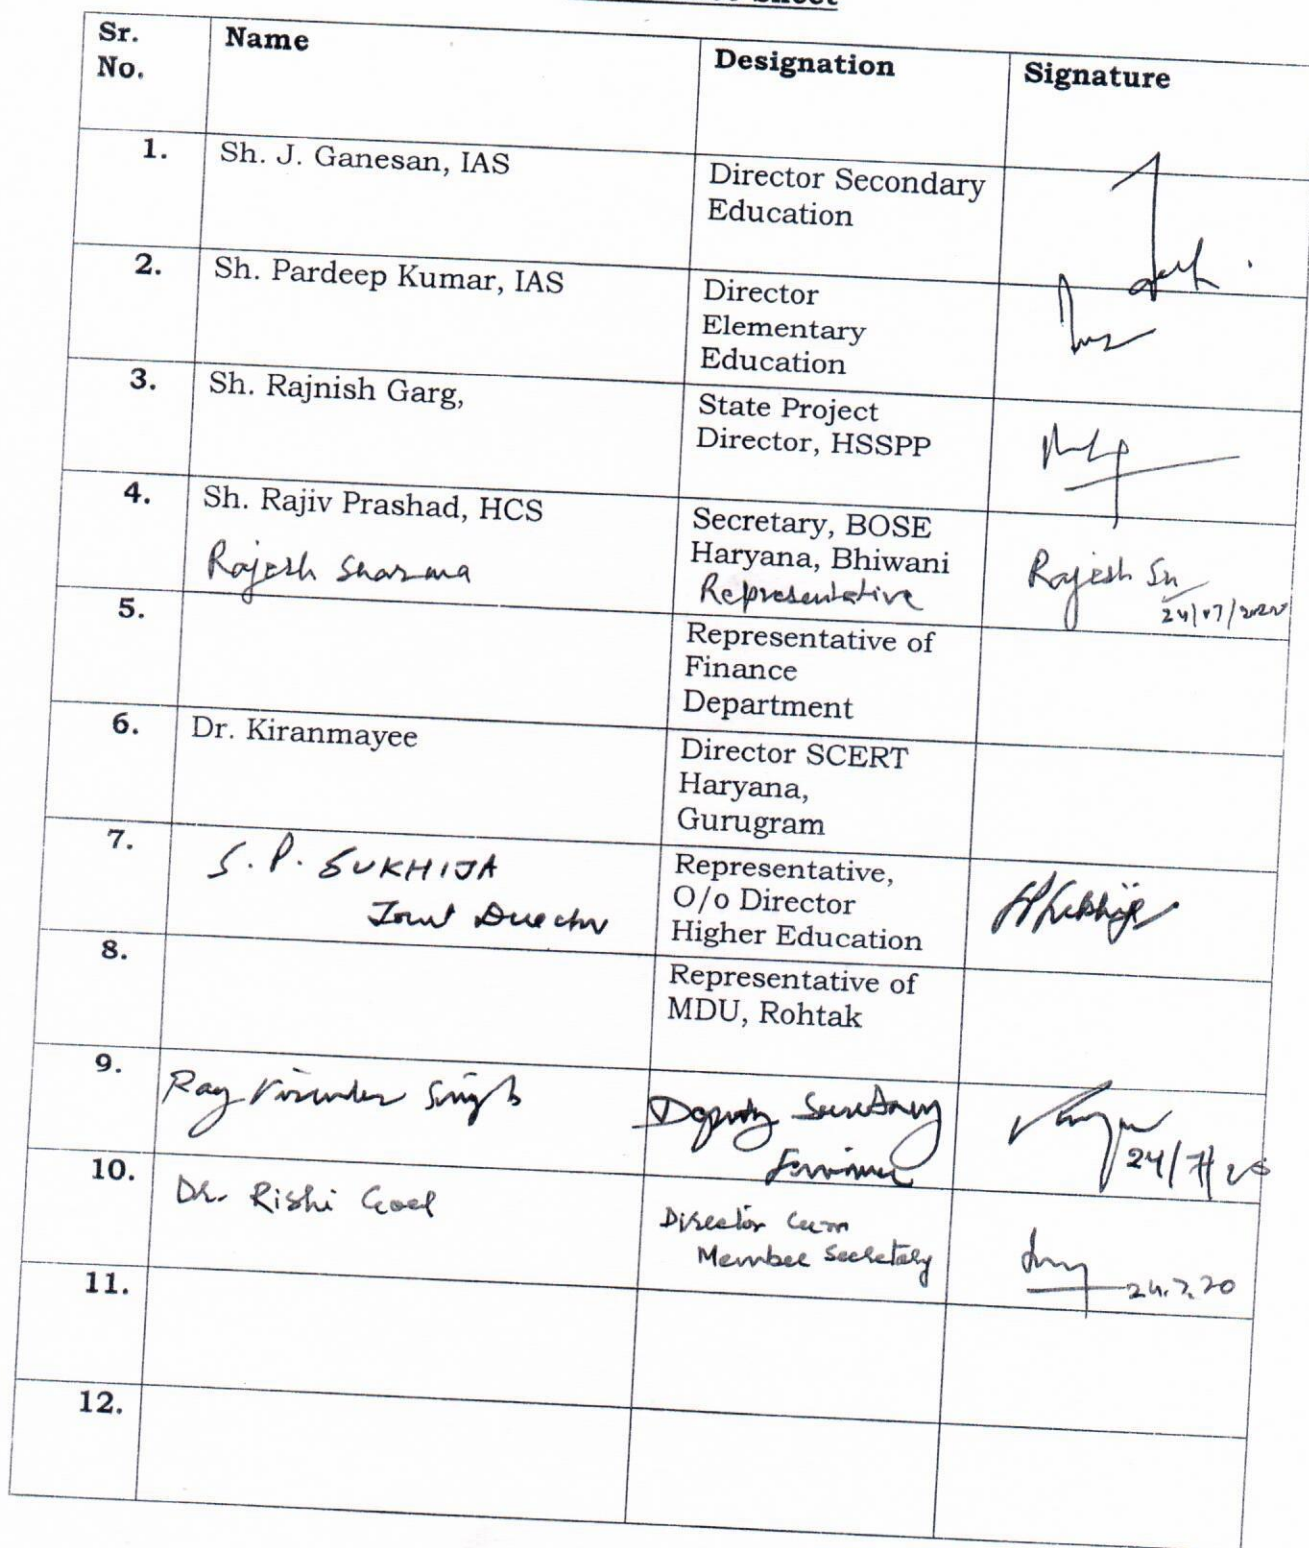 Sheet
Sr. No.
Name
Designation
Signature
1.
Sh. J. Ganesan, IAS
Director Secondary
Education
2.
Sh. Pardeep Kumar, IAS
Director
Elementary
Education
3.
Sh. Rajnish Garg,
State Project
Director, HSSPP
4.
Sh. Rajiv Prashad, HCS
Rajesh Sharma
Secretary, BOSE
Haryana, Bhiwani
Representative
Rajesh
24/07/2020
5.
Representative of
Finance
Department
6.
Dr. Kiranmayee
Director SCERT
Haryana,
Gurugram
7.
S. P. SUKHIJA
Joint Director
Representative,
O/o Director
Higher Education
8.
Representative of
MDU, Rohtak
9.
Singh
Deputy Secretary
24/7/20
10.
Dr. Rishi Goel
Director Cum
Member Secretary
24.7.20
11.
12.